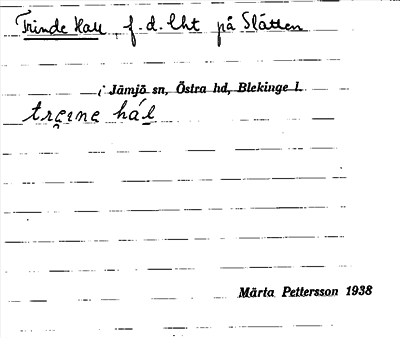 Trinde Hall f.d. lht på Slätten
i Jämjö sn, Östra hd, Blekinge l.
hál
Märta Pettersson 1938